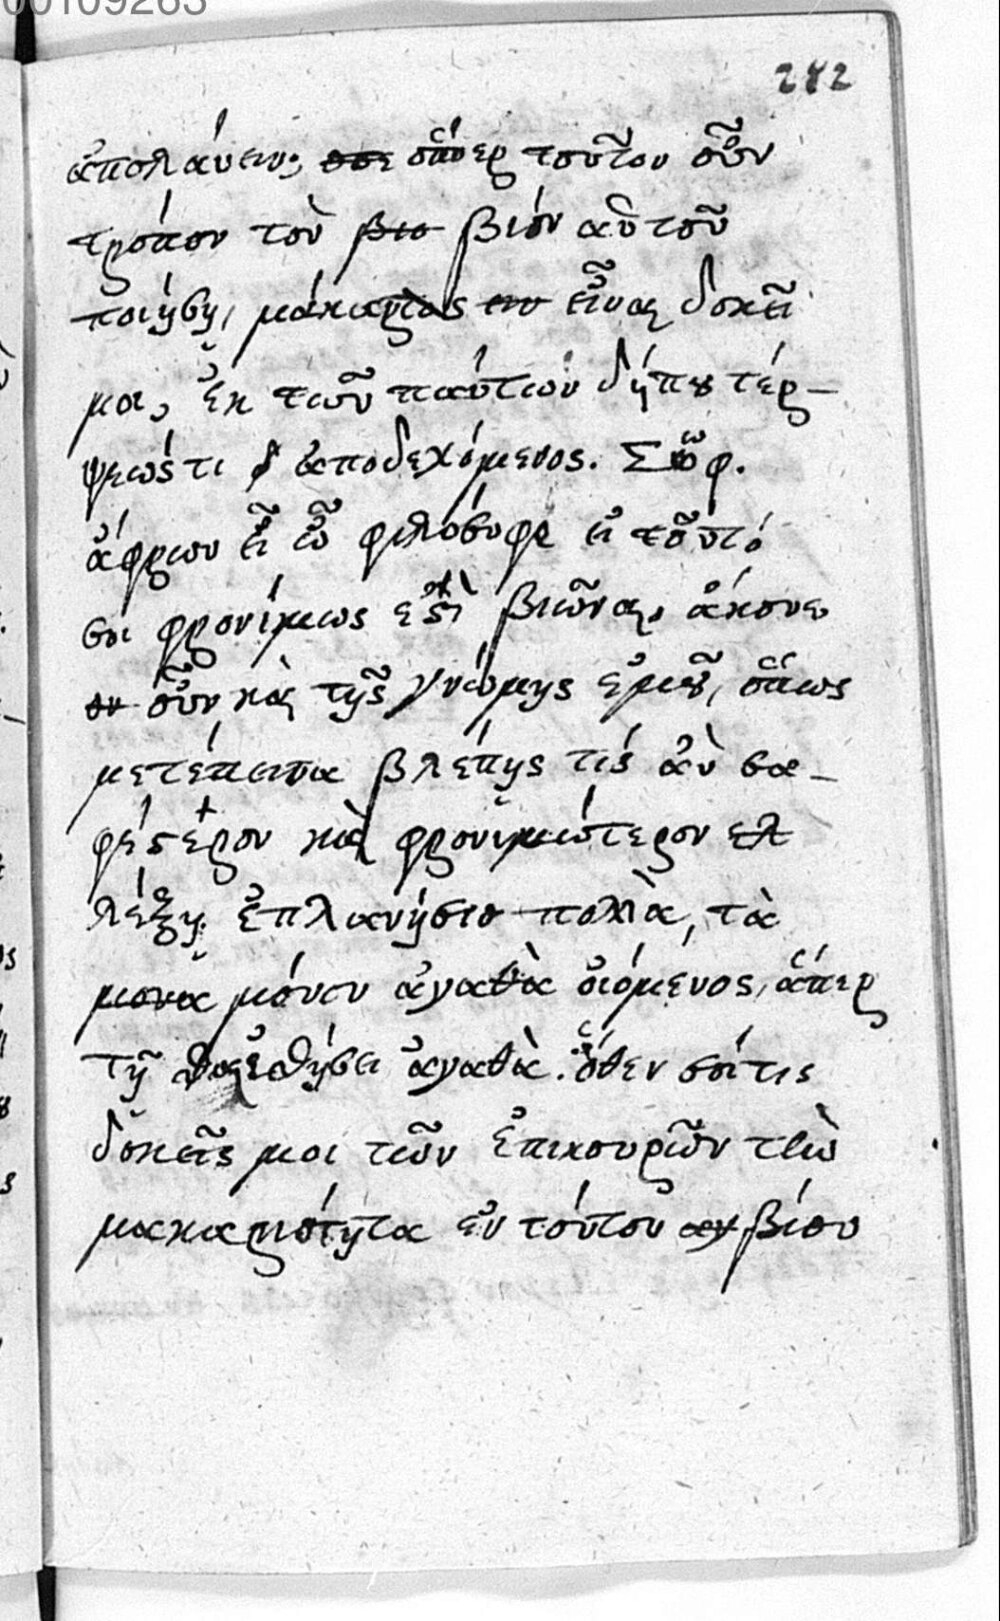 00109263
282
ἀπολάυειν; ὅσπερ τοῦτον οὖν
τρόπον τὸν βίον αὐτοῦ
ποιήσῃ, μακάριος εἶναι δοκεῖ
μοι, ἐκ τῶν πάντων δήπου τέρ-
ψεώς τι ἀποδεχόμενος. Σωφ.
ἄφρων εἶ ὦ φιλόσοφε εἰ τοῦτό
σοι φρονίμως ἐστὶ βιῶναι. ἄκουε
οὖν καὶ τῆς γνώμης ἐμοῦ, ὅπως
μετέπειτα βλέπῃς τίς ἂν σα-
φέστερον καὶ φρονιμώτερον
λέξῃ. ἐπλανήσω πολλὰ, τὰ
μόνον ἀγαθὰ οἰόμενος, ἅπερ
τῇ αἰσθήσει ἀγαθὰ. ὅθεν σύ τις
δοκεῖς μοι τῶν ἐπικουρίων τὴν
μακαριότητα ἐν τούτου βίου